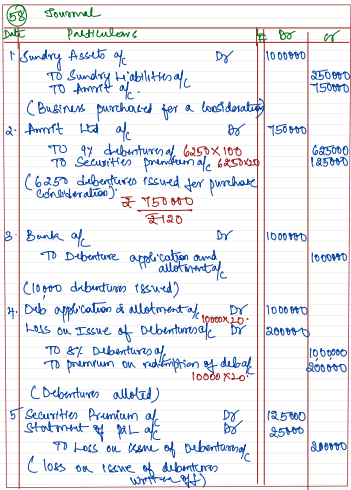 58 Journal
Date Particulars Dr Cr
1. Sundry Assets a/c Dr 1000000
To Sundry Liabilities a/c 250000
To Amrit a/c. 750000
(Business purchased for a consideration)
2. Amrit Ltd a/c Dr 750000
To 9% debentures a/c 6250×100 625000
To Securities premium a/c 6250×20 125000
(6250 debentures issued for purchase
consideration).
₹ 750000
₹ 120
3. Bank a/c Dr 1000000
To Debenture application and 1000000
allotment a/c
(10,000 debentures issued)
4. Deb application & allotment a/c Dr 1000000
10000×20.
Loss on Issue of Debentures a/c Dr 200000
To 8% Debentures a/c 1000000
To premium on redemption of deb a/c 200000
10000×20.
(Debentures alloted)
5 Securities Premium a/c Dr 125000
Statment of P&L a/c Dr 25000
To Loss on issue of Debentures a/c 200000
(loss on issue of debentures
written off)